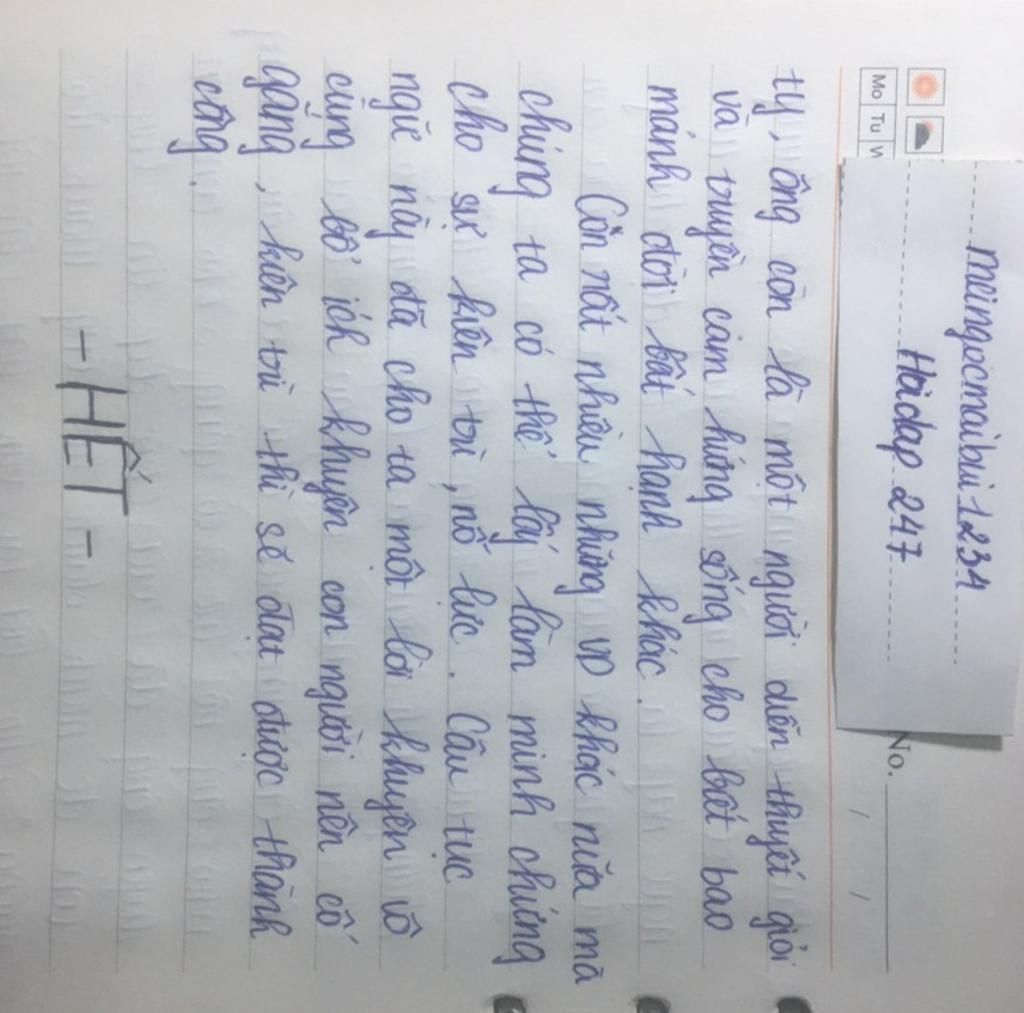 meingocmaibui1234
Hoidap 247
Mo Tu
No.
/ /
ty, ông còn là một người diễn thuyết giỏi
và truyền cảm hứng sống cho biết bao
mảnh đời bất hạnh khác.
Còn rất nhiều những VD khác nữa mà
chúng ta có thể lấy làm minh chứng
cho sự kiên trì, nỗ lực. Câu tục
ngữ này đã cho ta một lời khuyên vô
cùng bổ ích khuyên con người nên cố
gắng, kiên trì thì sẽ đạt được thành
công.
- HẾT -